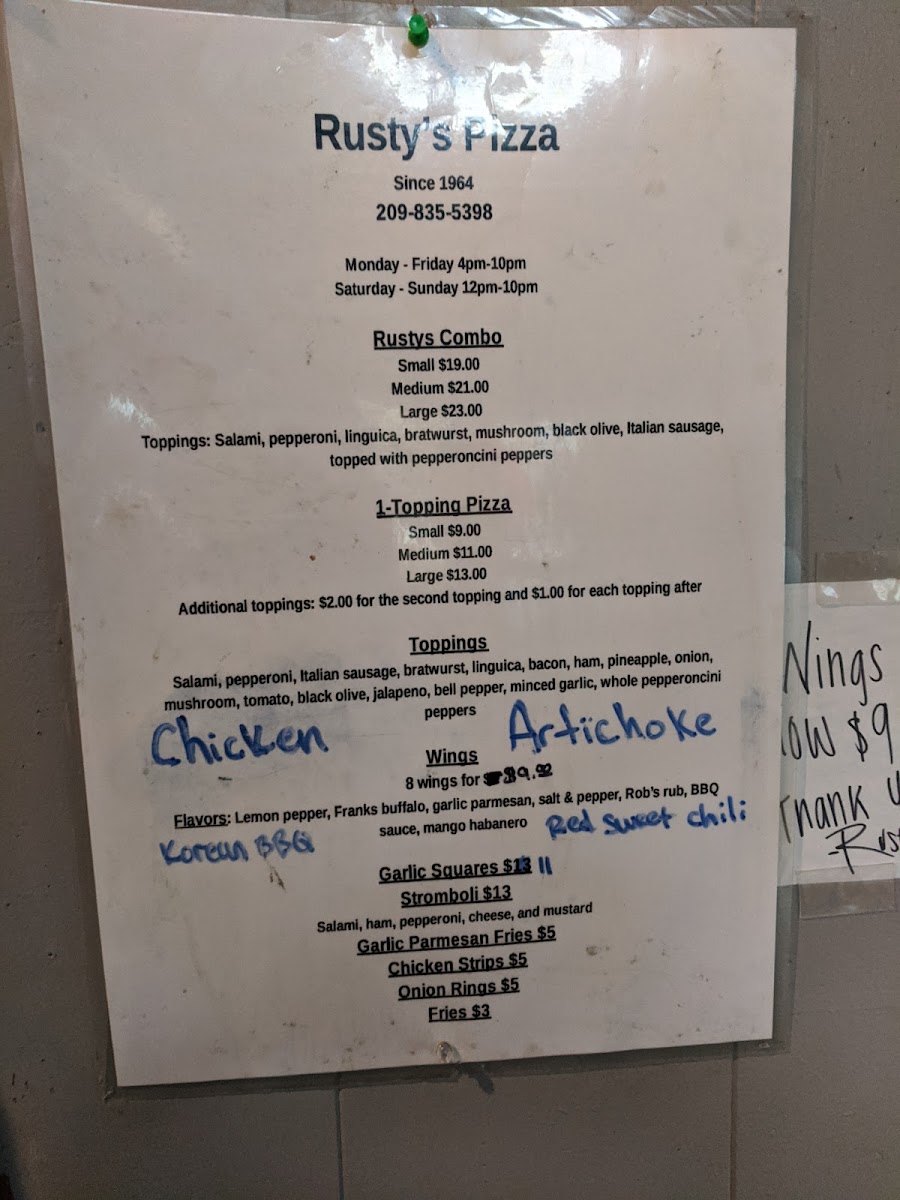 Rusty's Pizza
Since 1964
209-835-5398
Monday - Friday 4pm-10pm
Saturday - Sunday 12pm-10pm
Rustys Combo
Small $19.00
Medium $21.00
Large $23.00
Toppings: Salami, pepperoni, linguica, bratwurst, mushroom, black olive, Italian sausage,
topped with pepperoncini peppers
1-Topping Pizza
Small $9.00
Medium $11.00
Large $13.00
Additional toppings: $2.00 for the second topping and $1.00 for each topping after
Toppings
Salami, pepperoni, Italian sausage, bratwurst, linguica, bacon, ham, pineapple, onion,
mushroom, tomato, black olive, jalapeno, bell pepper, minced garlic, whole pepperoncini
peppers
Chicken Artichoke
Wings
8 wings for
Flavors: Lemon pepper, Franks buffalo, garlic parmesan, salt & pepper, Rob's rub, BBQ
sauce, mango habanero
Korean BBQ Red sweet chili
Garlic Squares $13 11
Stromboli $13
Salami, ham, pepperoni, cheese, and mustard
Garlic Parmesan Fries $5
Chicken Strips $5
Onion Rings $5
Fries $3
Wings
$9
Thank